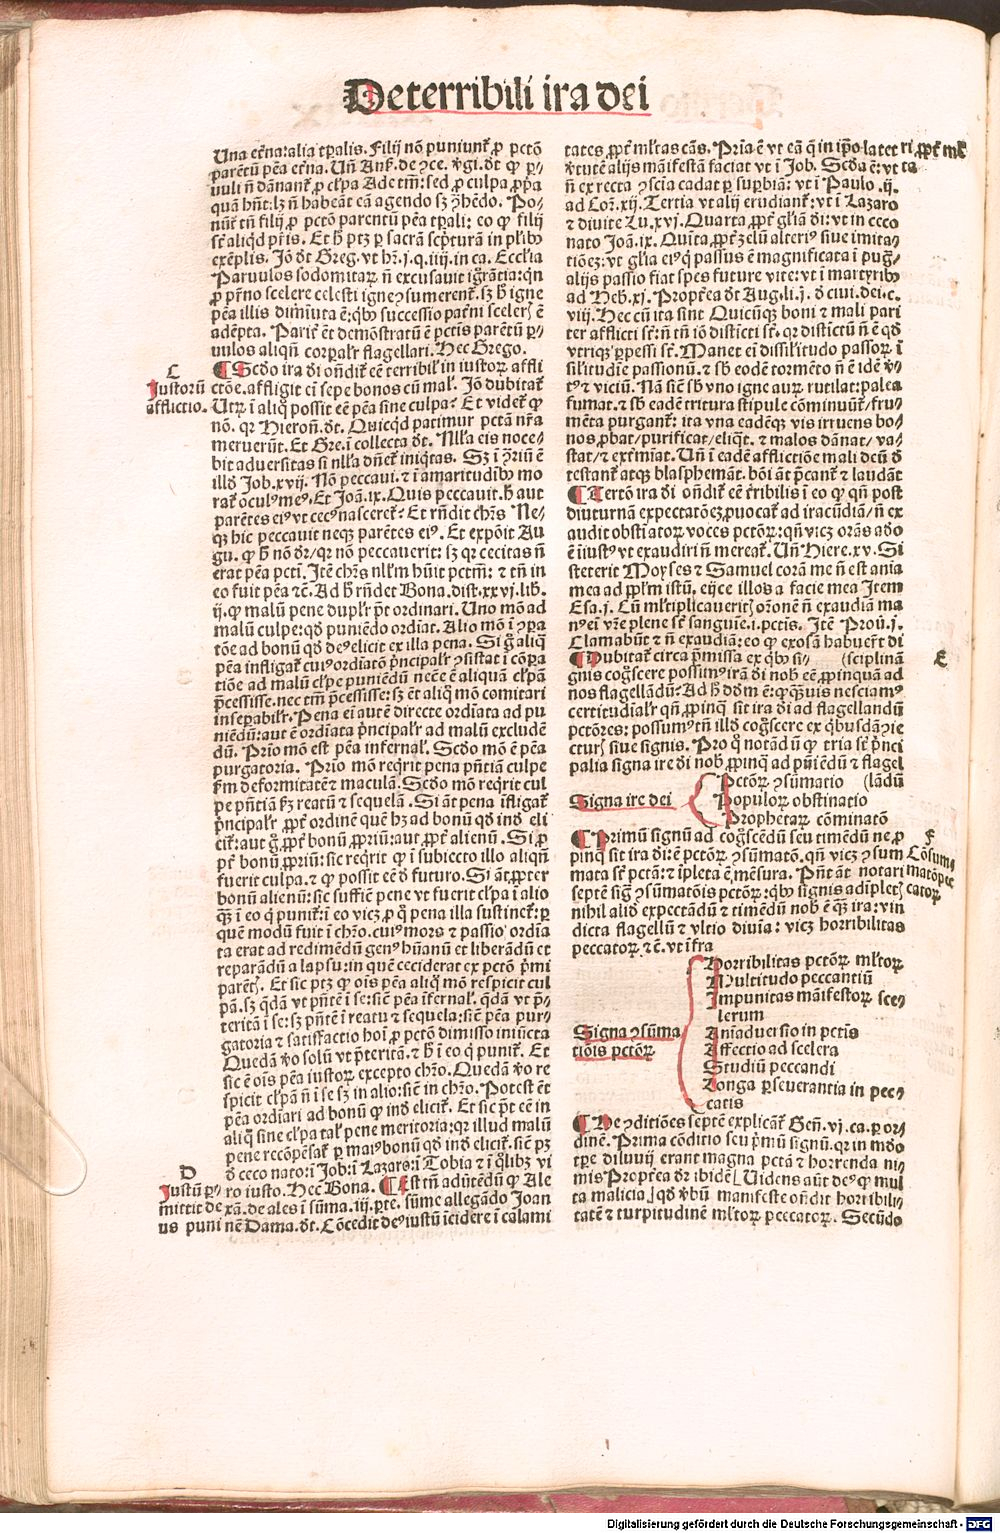 De terribili ira dei
Una et̄na: alia tp̄alis. Filij nō puniunt᷑ ꝓ pctō
parētū pēa et̄na. Uñ Ansḻ. de ꝯce. v̓gi. dt̄ ꝙ ꝑ-
vuli n̄ dānant᷑ ꝓ cl̓pa Ade tm̄: sed ꝓ culpa ꝓp̄a
quā hn̄t: lꝫ n̄ habeāt eā agendo sꝫ ꝯ̓hēdo. Po-
nūt᷑ tn̄ filij ꝓ pctō parentū pēa tp̄ali: eo ꝙ filij
sē aliqd pr̄is. Et h̓ ptꝫ ꝑ sacrā scp̄turā in pl̓ibꝰ
exēplis. Jō dt̄ Greg. vt hr̄. j. q. iiij. in ca. Ecclīa
Paruulos sodomitaꝝ n̄ excusauit igr̄ātia: qn
ꝓ pr̄no scelere celesti igneꝫ sumerent᷑. sꝫ h̓ igne
pēa illis dimiuta ē: qbꝰ successio pat̄ni sceleriˢ ē
adēpta. Parit̓ ēt demōstratū ē pctīs parētū ꝑ-
uulos aliqn̄ corꝑalr̓ flagellari. Hec Grego.
C ¶ Scdo ira di on̄dit᷑ eē terribil̓ in iustoꝝ affli
Justorū ctōe. affligit ei̓ sepe bonos cū mal̓. Jō dubitat᷑
afflictio. Utꝝ i̓ aliq̊ possit eē pēa sine culpa? Et videt᷑ ꝙ
nō. qr Hieron̄. dt̄. Quicq̓d patimur pctā nr̄a
meruerūt. Et Gre. i̓ collecta dt̄. Nll̓a eis noce-
bit aduersitas si nll̓a dn̄et᷑ iniq̓tas. Sꝫ i̓ ꝯ̓riū ē
illd̓ Job. xvij. Nō peccaui. ⁊ i̓ amaritudibꝰ mo
rat᷑ oculꝰ meꝰ. Et Joā. ix. Quis peccauit. h̓ aut
parētes eiꝰ vt cecꝰ nasceret᷑? Et rn̄dit chr̄s Ne-
qꝫ hic peccauit neqꝫ parētes eiꝰ. Et expōit Au
gu. ꝙ h̓ nō dr̄ / qr nō peccauerit: sꝫ qr cecitas n̄
erat pēa pcti. Itē chr̄s nll̓m hūit pctm̄: ⁊ tn̄ in
eo fuit pēa ⁊c̄. Ad h̓ rn̄det Bona. dist. xxvj. lib.
ij. ꝙ malū pene dupl̓r p̄t ordinari. Uno mō ad
malū culpe: qd̓ puniēdo ordīat. Alio mō i̓ ꝯpa
tōe ad bonū qd̓ deꝰ elicit ex illa pena. Si g̊ aliq̊
pēa infligat᷑ cuiꝰ ordiatō pn̓cipalr̓ ꝯsistat i̓ cōꝑa
tiōe ad malū cl̓pe puniēdū necē ē aliquā cl̓pā
p̄cessisse. nec tm̄ p̄cessisse: sꝫ ēt aliq̊ mō comitari
inseꝑabilr̓. Pena ei̓ autē directe ordīata ad pu
niēdū: aut ē ordīata pn̓cipalr̓ ad malū excludē
dū. Prīo mō est pēa infernal̓. Scdo mō ē pēa
purgatoria. Prīo mō req̓rit pena pn̄tiā culpe
ẜm deformitatē ⁊ maculā. Scdo mō req̓rit cul
pe pn̄tiā ẜꝫ reatū ⁊ sequelā. Si āt pena i̓fligat᷑
pn̓cipalr̓ ꝓpt̓ ordinē quē hꝫ ad bonū qd̓ ind̓ eli
cit᷑: aut g̊ ꝓpt̓ bonū ꝓpriū: aut ꝓpt̓ alienū. Si ꝓ
pt̓ bonū ꝓpriū: sic req̓rit ꝙ i̓ subiecto illo aliqn̄
fuerit culpa. ⁊ ꝙ possit eē d̓ futuro. Si āt ꝓpter
bonū alienū: sic suffic̄ pene vt fuerit cl̓pa i̓ alio
qꝫ i̓ eo q̓ punit᷑: i̓ eo vicꝫ ꝓ q̊ pena illa sustinet᷑: ꝑ
quē modū fuit i̓ chō. cuiꝰ mors ⁊ passio ordīa
ta erat ad redimēdū genꝰ hūanū et liberādū et
reparādū a lapsu: in quē ceciderat ex pctō p̄mi
parētꝫ. Et sic ptꝫ ꝙ ois pēa aliq̊ mō respicit cul
pā. sꝫ q̓dā vt pn̄tē i̓ se: sic̄ pēa i̓fernal̓. q̓dā vt p̄-
teritā i̓ se: sꝫ pn̄tē i̓ reatu ⁊ sequela: sic̄ pēa pur-
gatoria ⁊ satisfactio hoi̓ ꝓ pctō dimisso iniūcta
Quedā v̊o solū vt p̄teritā. ⁊ h̓ i̓ eo q̓ punit᷑. Et
sic ē ois pēa iustoꝝ excepto chō. Quedā v̊o re
spicit cl̓pā n̄ i̓ se sꝫ in alio: sic̄ in chō. Potest ēt
pēa ordīari ad bonū ꝙ ind̓ elicit᷑. Et sic p̄t eē in
aliq̊ sine cl̓pa tal̓ pene meritoria: qr illud malū
pene recōpēsat᷑ ꝑ maiꝰ bonū qd̓ ind̓ elicit᷑. sic̄ pꝫ
D d̓ ceco nato: i̓ Job: i̓ Lazaro: i̓ Tobia ⁊ i̓ q̊libꝫ vi
Justū ꝑ- ro iusto. Hec Bona. ¶ Est tn̄ adūtēdū ꝙ Ale
mittit de xā. de ales i̓ sūma. iij. ꝑte. sūme allegādo Joan
us puni nē Dama. dt̄. Cōcedit deꝰ iustū i̓cidere i̓ calami
tates ꝓpt̓ ml̓tas cās. Prīa ē vt eā q̄ in ip̄o latet ri. ꝓpt̓ ml̓
v̓tutē alijs māifestā faciat vt i̓ Job. Scda ē: vt ta
n̄ ex recta ꝯsc̄ia cadat ꝑ suꝑbiā: vt i̓ Paulo. ij.
ad Cor̄. xij. Tertia vt alij erudiant᷑: vt i̓ Lazaro
⁊ diuite Lu. xvj. Quarta ꝓpt̓ gl̓iā di: vt in ceco
nato Joā. ix. Quīta ꝓpt̓ zelū alteriꝰ siue imita-
tiōeꝫ: vt gl̓ia eiꝰ q̓ passus ē magnificata i̓ pug̓-
alijs passio fiat spes future vite: vt i̓ martyribꝰ
ad Heb. xj. Propt̓ea dt̄ Aug. li. j. d̓ ciui. dei. c.
viij. Hec cū ita sint Quicūqꝫ boni ⁊ mali pari
ter afflicti sē: n̄ tn̄ iō distīcti sē. qr distīctū n̄ ē qd̓
vtriqꝫ ꝑpessi sē. Manet ei̓ dissil̓itudo passoꝝ i̓
sil̓itudīe passionū. ⁊ sb̓ eodē tormēto n̄ ē idē v̓-
tꝰ ⁊ viciū. Nā sic̄ sb̓ vno igne auꝝ rutilat: palea
fumat. ⁊ sb̓ eadē tritura stipule cōminuūt᷑ / fru-
mēta purgant᷑: ita vna eadēqꝫ vis irruens bo-
nos ꝓbat / purificat / eliq̓t. ⁊ malos dānat / va-
stat / ⁊ ext̓miat. Uñ i̓ eadē afflictiōe mali deū de
testant᷑ atqꝫ blasphemāt. boi̓ āt p̄cant᷑ ⁊ laudāt
¶ Tertō ira di on̄dit᷑ eē t̓ribilis i̓ eo ꝙ qn̄ post
diuturnā expectatōeꝫ ꝓuocat᷑ ad iracūdiā / n̄ ex
audit obstīatoꝝ voces pctōꝝ: qn̄ vicꝫ orās adō
ē īiustꝰ vt exaudiri n̄ mereat᷑. Uñ Hiere. xv. Si
steterit Moyses ⁊ Samuel corā me n̄ est aīa
mea ad ppl̓m istū. eijce illos a facie mea Item
Esa. j. Cū ml̓tiplicaueritꝫ or̄onē n̄ exaudiā ma
nꝰ ei̓ vr̄e plene sē sanguie. i. pctīs. Itē Prou̓. j.
Clamabūt ⁊ n̄ exaudiā: eo ꝙ exosā habuer̄t di
¶ Dubitat᷑ circa p̄missa ex qbꝰ si- (sciplinā E
gnis cog̊scere possimꝰ irā di nob̓ eē ꝓpinquā ad
nos flagellādū? Ad h̓ dd̓m ē: ꝙ q̓ꝫuis nesciamꝰ
certitudīalr̓ qn̄ ꝓpinq̄ sit ira di ad flagellandū
pctōres: possumꝰ tn̄ illd̓ cog̊scere ex qbusdā ꝯie
cturꝫ siue signis. Pro q̊ notādū ꝙ tria sē pn̓ci
palia signa ire di nob̓ ꝓpinq̄ ad puiēdū ⁊ flagel
Pctōꝝ ꝯsūmatio (lādū
Signa ire dei Populoꝝ obstinatio
Prophetaꝝ cōminatō
¶ Primū signū ad cog̊scēdū seu timēdū ne ꝓ F
pinq̄ sit ira di: ē pctōꝝ ꝯsūmatō. qn̄ vicꝫ ꝯsum Cōsum
mata sē pctā: ⁊ ipleta ē mēsura. Pn̄t āt notari matō pec
septē sig̓ ꝯsumatōis pctōꝝ: qbꝰ signis adīpletꝫ catoꝝ
nihil aliō expectādū ⁊ timēdū nob̓ ē qꝫ ira: vin
dicta flagellū ⁊ vltio diuīa: vicꝫ horribilitas
peccatoꝝ ⁊c̄. vt i̓fra
Horribilitas pctōꝝ ml̓toꝝ
Multitudo peccantiū
Impunitas māifestoꝝ sce-
lerum
Signa ꝯsūma Aniaduersio in pctīs
tiōis pctōꝝ Affectio ad scelera
Studiū peccandi
Longa ꝑseuerantia in pec-
catis
¶ He ꝯditiōes septē explicāt᷑ Gen̄. vj. ca. ꝑ or-
dinē. Prima cōditio seu p̄mū signū. qr in mdo
tp̄e diluuij erant magna pctā ⁊ horrenda ni-
mis Propt̓ea dr̄ ibidē [Uidens aūt deꝰ ꝙ mul
ta malicia] qd̓ v̓bū manifeste on̄dit horribili-
tatē ⁊ turpitudinē ml̓toꝝ peccatoꝝ. Secūdo
Digitalisierung gefördert durch die Deutsche Forschungsgemeinschaft - DFG